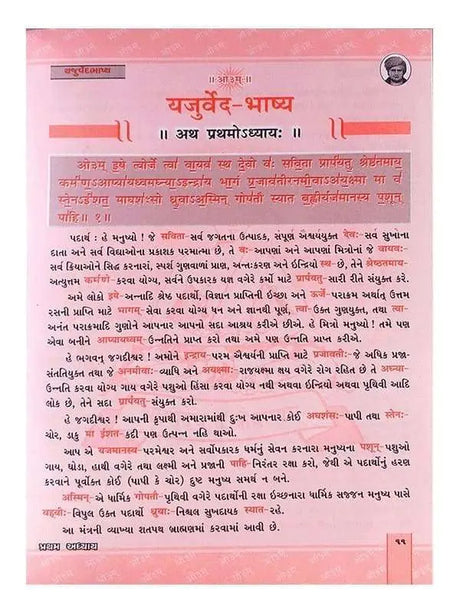 યજુર્વેદભાષ્ય
॥ ઓ૩મ્ ॥
યજુર્વેદ-ભાષ્ય
॥ અથ પ્રથમોઽધ્યાયઃ ॥
ઓ૩મ્ इषे त्वोर्जे त्वा वायव स्थ देवो वः सविता प्रार्पयतु श्रेष्ठतमाय
कर्मणऽआप्यायध्वमघ्न्याऽइन्द्राय भागं प्रजावतीरनमीवाऽअयक्ष्मा मा व
स्तेनऽईशत माघशꣳसो ध्रुवाऽअस्मिन् गोपतौ स्यात बह्वीर्यजमानस्य पशून्
पाहि ॥ १॥
પદાર્થ : હે મનુષ્યો ! જે સવિતા-સર્વ જગતના ઉત્પાદક, સંપૂર્ણ ઐશ્વર્યયુક્ત દેવઃ-સર્વ સુખોના
દાતા અને સર્વ વિદ્યાઓના પ્રકાશક પરમાત્મા છે, તે વઃ-આપણાં અને આપણાં મિત્રોનાં જે વાયવઃ-
સર્વ ક્રિયાઓને સિદ્ધ કરનારાં, સ્પર્શ ગુણવાળાં પ્રાણ, અન્તઃકરણ અને ઇન્દ્રિયો સ્થ-છે, તેને શ્રેષ્ઠતમાય-
અત્યુત્તમ કર્મણે-કરવા યોગ્ય, સર્વને ઉપકારક યજ્ઞ વગેરે કર્મો માટે પ્રાર્પયતુ-સારી રીતે સંયુક્ત કરે.
અમે લોકો ઇષે-અન્નાદિ શ્રેષ્ઠ પદાર્થો, વિજ્ઞાન પ્રાપ્તિની ઇચ્છા અને ઊર્જે-પરાક્રમ અર્થાત્ ઉત્તમ
રસની પ્રાપ્તિ માટે ભાગમ્-સેવા કરવા યોગ્ય ધન અને જ્ઞાનથી પૂર્ણ, ત્વા-ઉક્ત ગુણયુક્ત, તથા ત્વા-
અનંત પરાક્રમાદિ ગુણોને આપનાર આપનો સદા આશ્રય કરીએ છીએ. હે મિત્રો મનુષ્યો ! તમે પણ
એવા બનીને આપ્યાયધ્વમ્-ઉન્નતિને પ્રાપ્ત કરો તથા અમે પણ ઉન્નતિ પ્રાપ્ત કરીએ.
હે ભગવન્ જગદીશ્વર ! અમોને ઇન્દ્રાય-પરમ ઐશ્વર્યની પ્રાપ્તિ માટે પ્રજાવતીઃ-જે અધિક પ્રજા-
સંતતિયુક્ત તથા જે અનમીવાઃ-વ્યાધિ અને અયક્ષ્માઃ-રાજયક્ષ્મા ક્ષય વગેરે રોગ રહિત છે તે અઘ્ન્યાઃ-
ઉન્નતિ કરવા યોગ્ય ગાય વગેરે પશુઓ હિંસા કરવા યોગ્ય નથી અથવા ઇન્દ્રિયો અથવા પૃથિવી આદિ
લોક છે, તેને સદા પ્રાર્પયતુ-સંયુક્ત કરો.
હે જગદીશ્વર ! આપની કૃપાથી અમારામાંથી દુઃખ આપનાર કોઈ અઘશંસઃ-પાપી તથા સ્તેનઃ-
ચોર, ડાકુ મા ઈશત-કદી પણ ઉત્પન્ન નહિ થાઓ.
આપ એ યજમાનસ્ય-પરમેશ્વર અને સર્વોપકારક ધર્મનું સેવન કરનારા મનુષ્યના પશૂન્-પશુઓ
ગાય, ઘોડા, હાથી વગેરે તથા લક્ષ્મી અને પ્રજાની પાહિ-નિરંતર રક્ષા કરો, જેથી એ પદાર્થોનું હરણ
કરવાને પૂર્વોક્ત કોઈ (પાપી કે ચોર) દુષ્ટ મનુષ્ય સમર્થ ન બને.
અસ્મિન્-એ ધાર્મિક ગોપતૌ-પૃથિવી વગેરે પદાર્થોની રક્ષા ઇચ્છનારા ધાર્મિક સજ્જન મનુષ્ય પાસે
બહ્વીઃ-વિપુલ ઉક્ત પદાર્થો ધ્રુવાઃ-નિશ્ચલ સુખદાયક સ્યાત-રહે.
આ મંત્રની વ્યાખ્યા શતપથ બ્રાહ્મણમાં કરવામાં આવી છે.
પ્રથમ અધ્યાય
૧૧